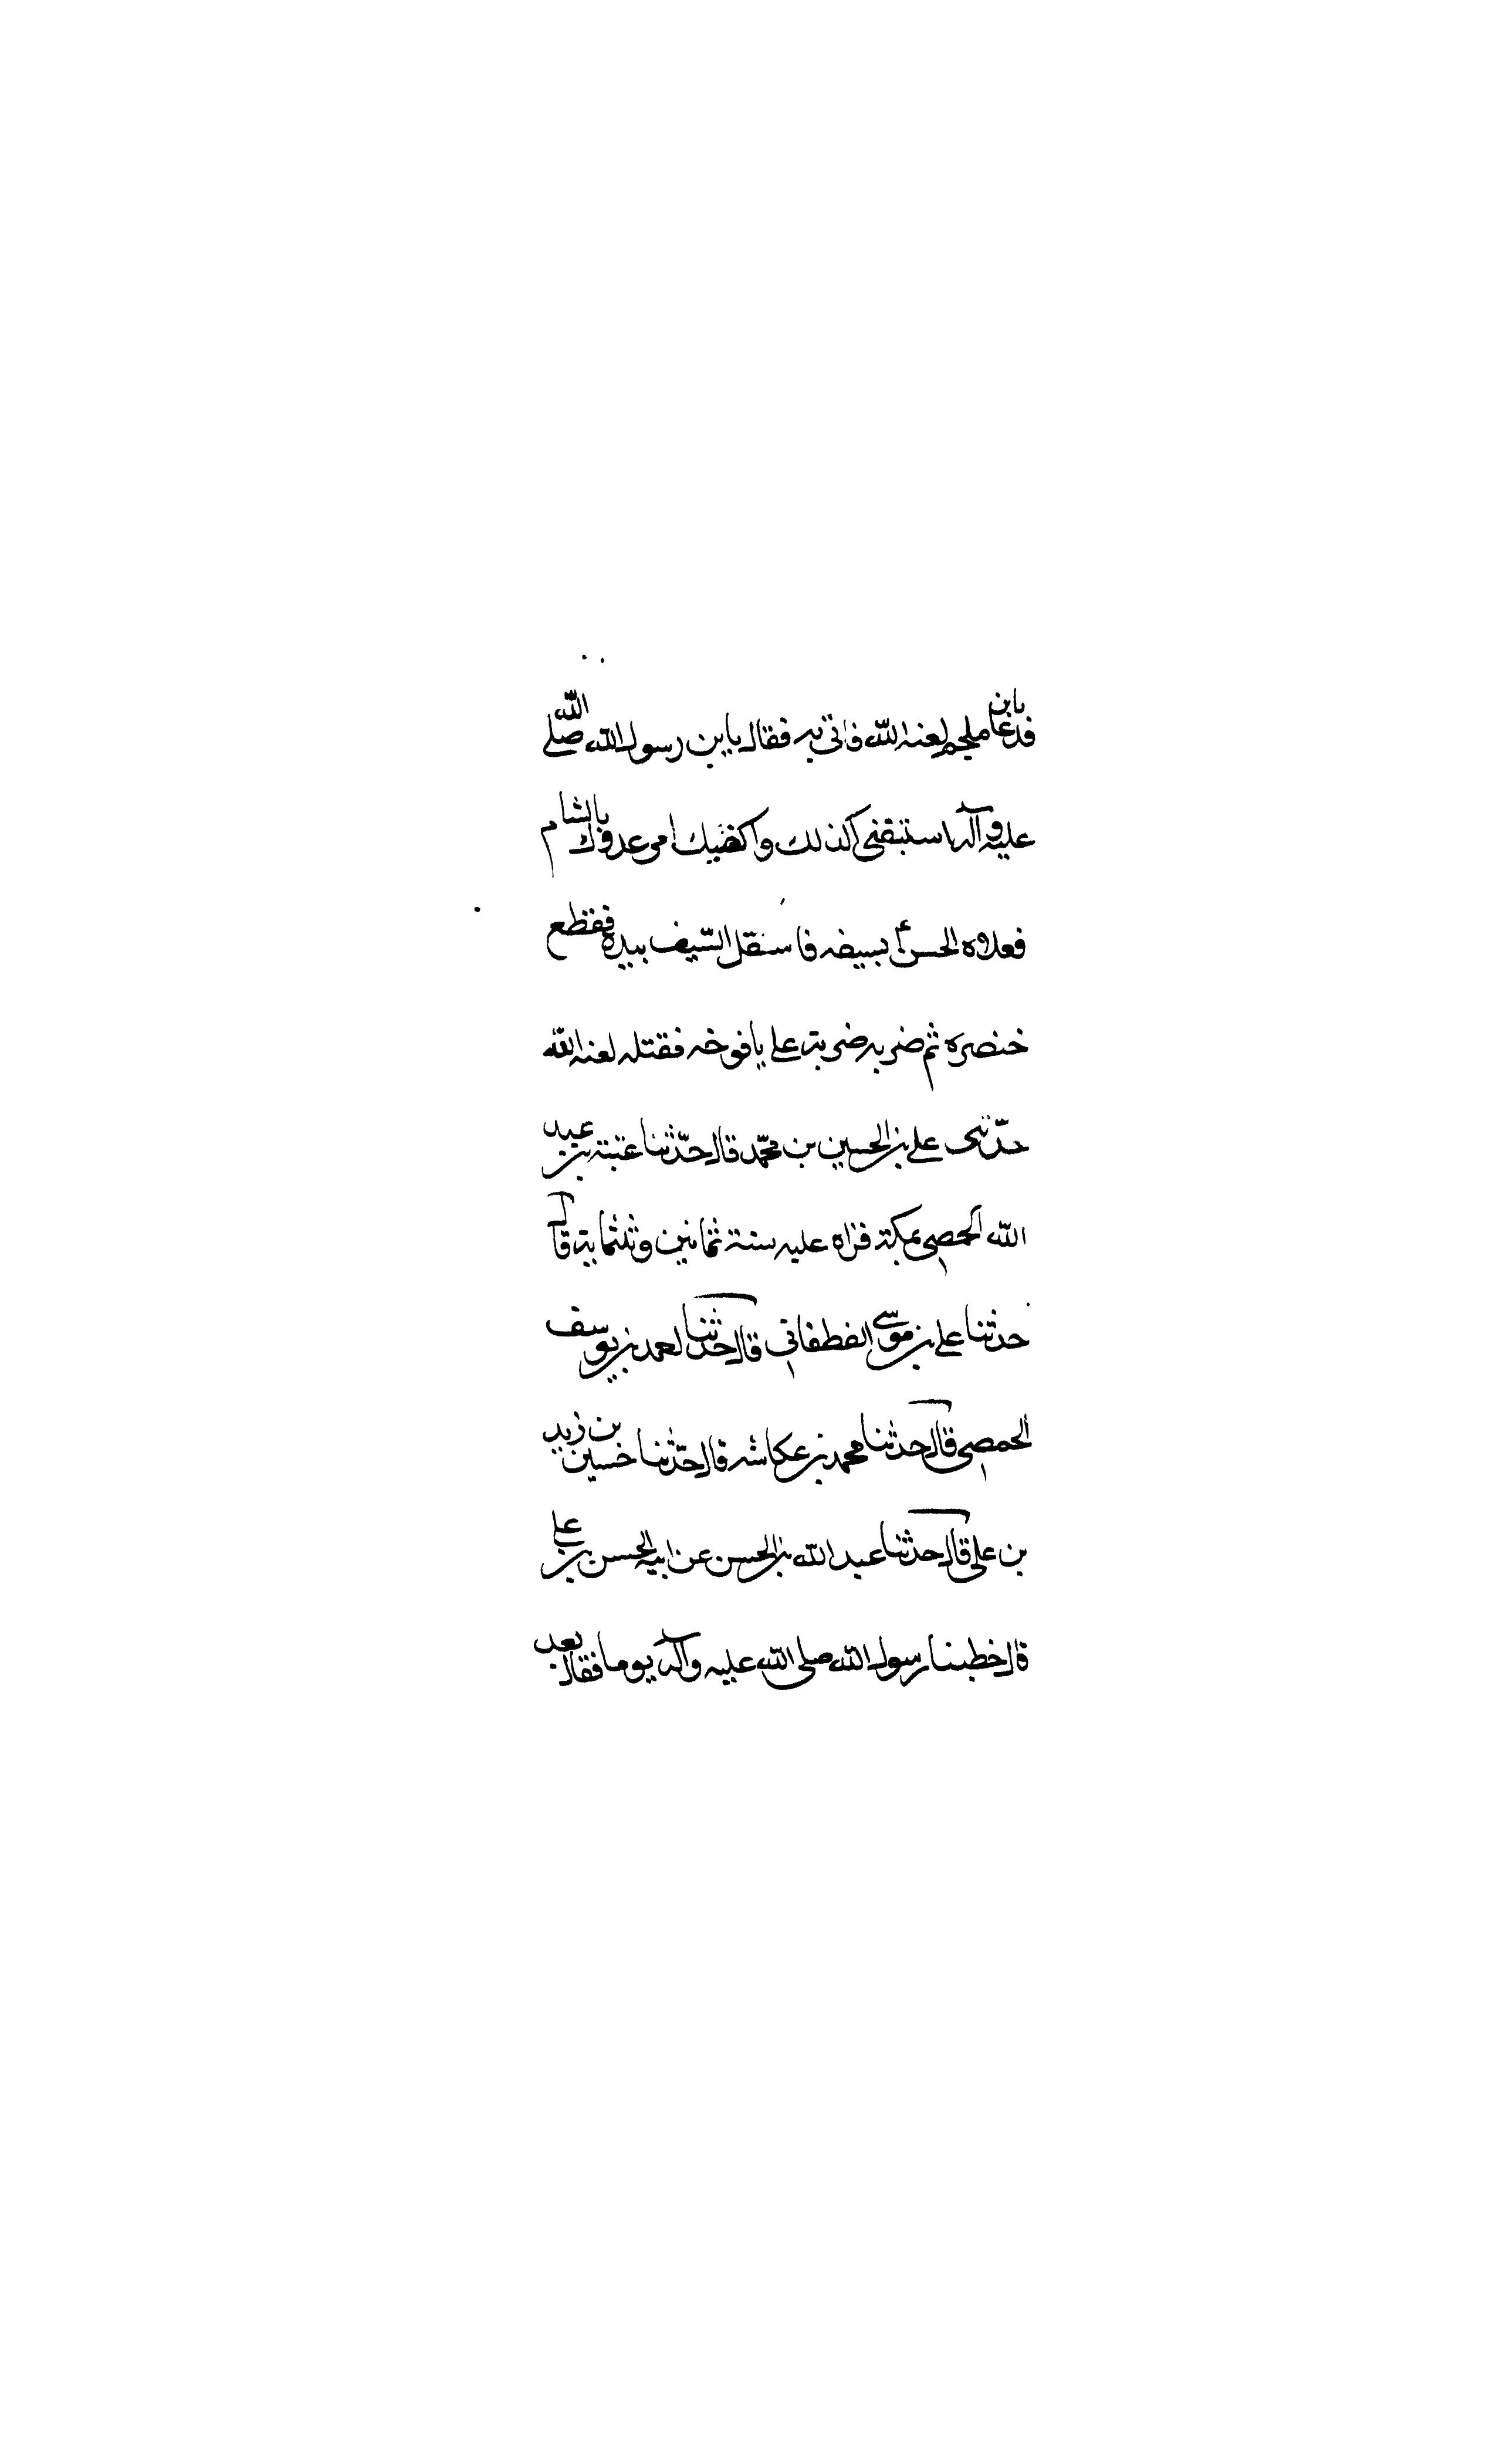 فدعا بابن ملجم لعنه الله فاتى به فقال يابن رسول الله صلى الله
عليه وآله استبقنى كذلك واكفيك امر عدوك بالشام
فعلاه الحسن بسيفه فاستقل السيف بيده فقطع
خنصره ثم ضربه ضربة على يافوخه فقتله لعنه الله
حدّثنى على بن الحسين بن محمّد قال حدّثنا عتبة بن عبد
الله الحمصى بمكة قراه عليه سنة ثمانين وثلثماية قال
حدثنا على بن موسى الغطفانى قال حدثنا احمد بن يوسف
الحمصى قال حدثنا محمد بن عكاشه قال حدّثنا حسين بن زيد
بن على قال حدثنا عبد الله بن الحسن عن ابيه الحسن بن على
قال خطبنا رسول الله صلى الله عليه وآله يوما فقال بعد